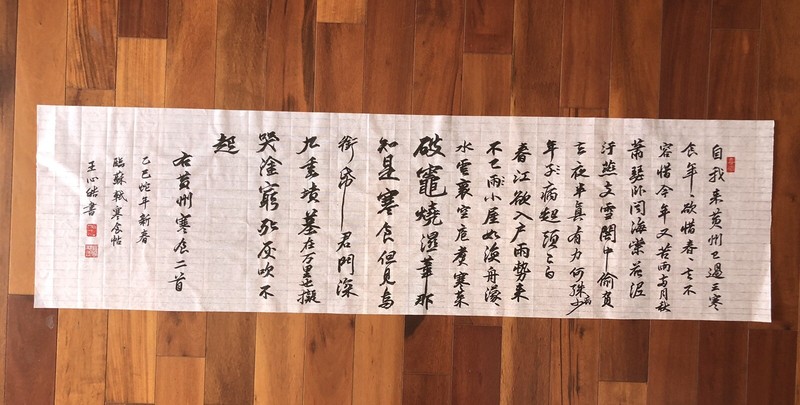 自我来黄州已過三寒
食年〻欲惜春〻去不
容惜今年又苦雨两月秋
蕭瑟卧聞海棠花泥
汙燕支雪闇中偷負
去夜半真有力何殊少
年子病起頭已白
春江欲入户雨勢来
不已雨小屋如漁舟濛〻
水雲裏空庖煮寒菜
破竈燒濕葦那
知是寒食但見烏
銜帋君門深
九重墳墓在万里也擬
哭塗窮死灰吹不
起
右黄州寒食二首
乙巳蛇年新春
臨蘇軾寒食帖
王心皓書